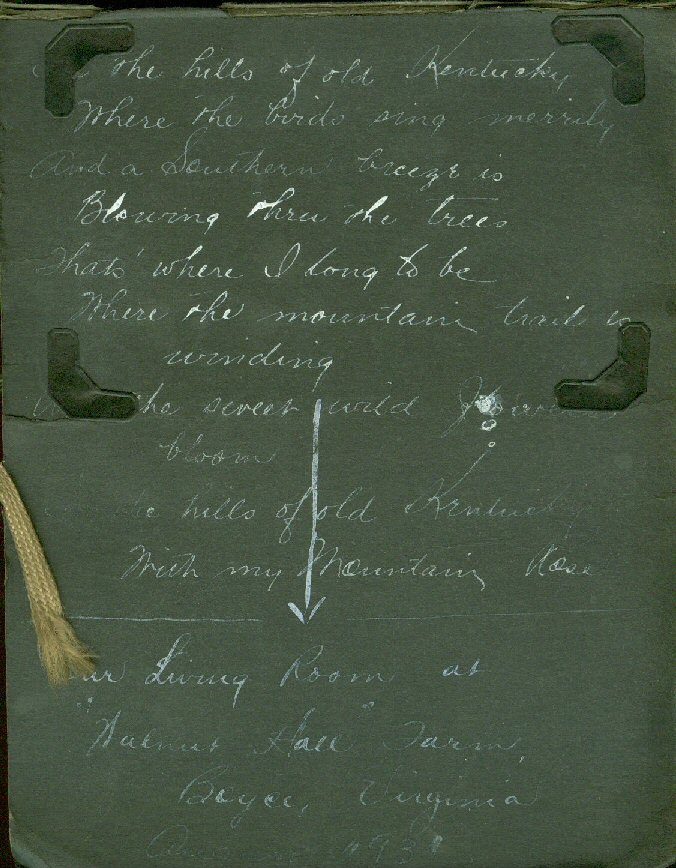 the hills of old Kentucky
Where the birds sing merrily
And a Southern breeze is
Blowing thru the trees
Thats' where I long to be
Where the mountain trail is
winding
the sweet wild flowers
bloom
the hills of old Kentucky
With my Mountain Rose
Our Living Room at
"Walnut Hall" Farm,
Boyce, Virginia